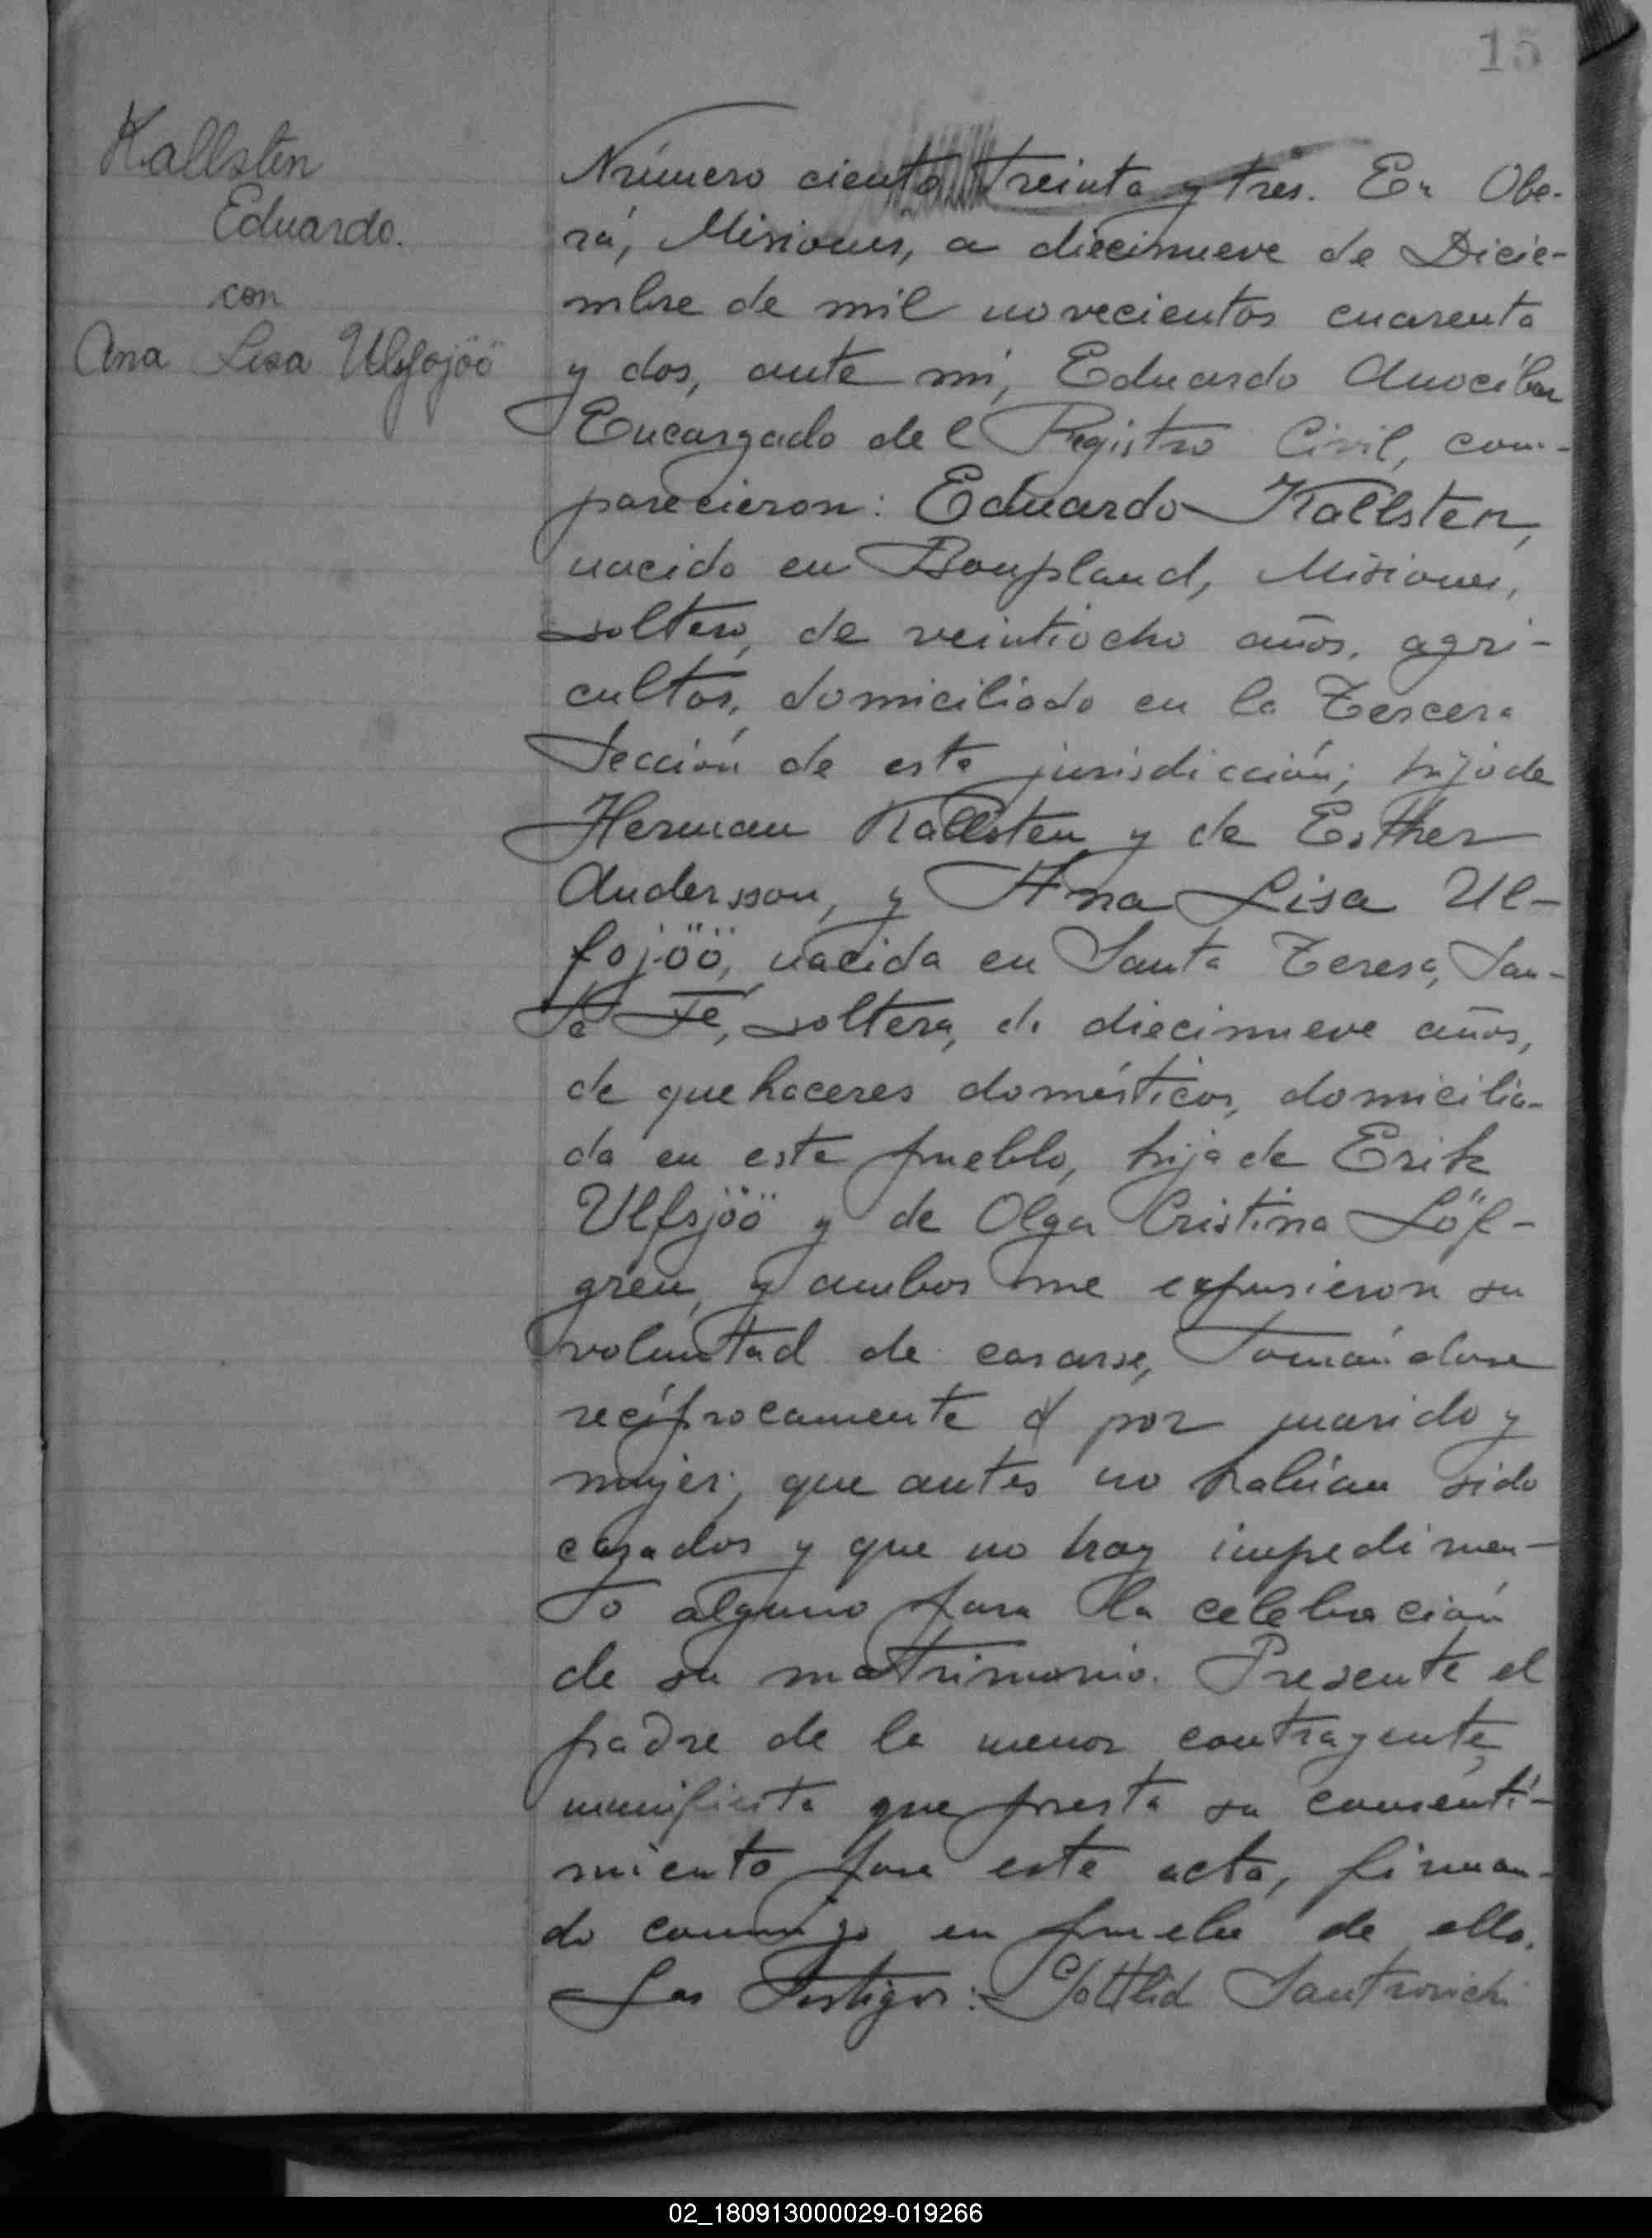 15
Kallsten
Eduardo.
con
Ana Lisa Ulsfojöö
Número ciento treinta y tres. En Obe-
rá, Misiones, a diecinueve de Dicie-
mbre de mil novecientos cuarenta
y dos, ante mí, Eduardo Anocíbar
Encargado del Registro Civil, com-
parecieron: Eduardo Kallsten,
nacido en Bonpland, Misiones,
soltero, de veintiocho años, agri-
cultor, domiciliado en la Tercera
Sección de esta jurisdicción; hijo de
Herman Kallsten y de Esther
Andersson, y Ana Lisa Ul-
fojöö, nacida en Santa Teresa, San-
ta Fé, soltera, de diecinueve años,
de quehaceres domésticos, domicilia-
da en este pueblo, hija de Erik
Ulfsjöö y de Olga Cristina Löf-
gren, y ambos me expusieron su
voluntad de casarse, tomándose
recíprocamente por marido y
mujer; que antes no habían sido
casados y que no hay impedimen-
to alguno para la celebración
de su matrimonio. Presente el
padre de la menor contrayente,
manifiesta que presta su consenti-
miento para este acto, firman-
do conmigo en prueba de ello.
Los Testigos: Gottlid
02_180913000029-019266